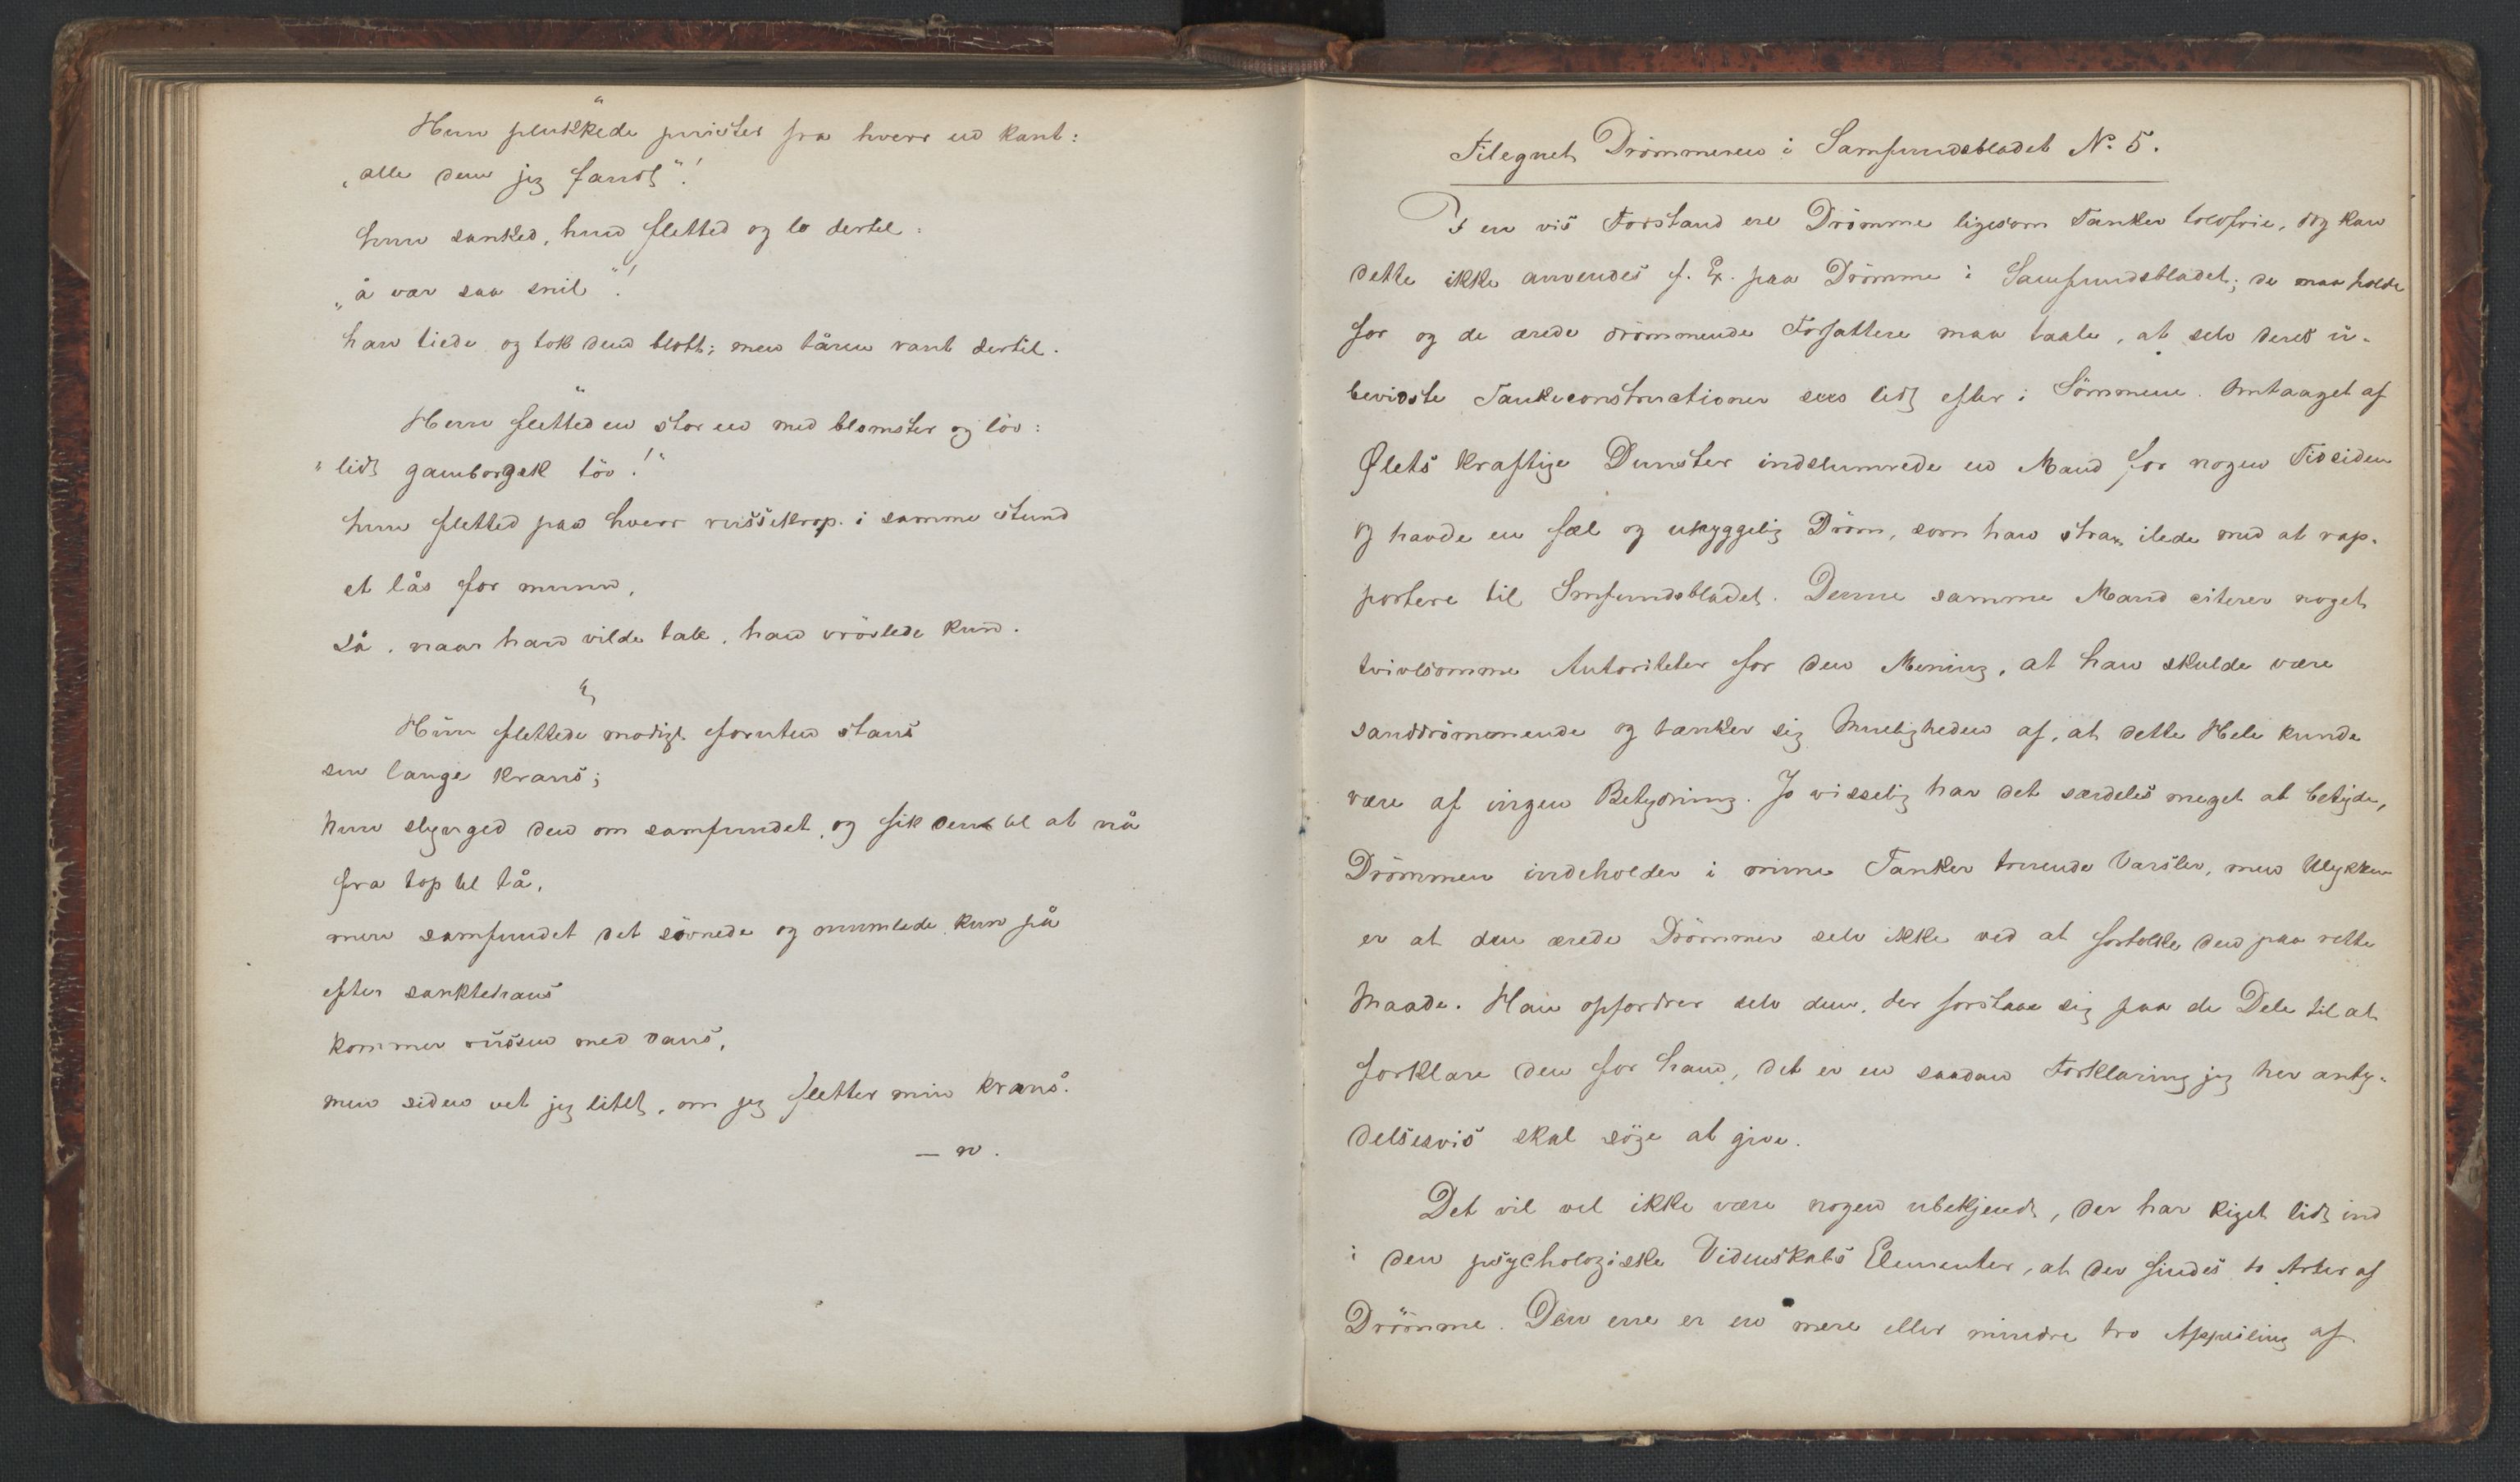 Hun plukkede purister fra hverr en kant:
„alle dem jeg fandt"!
hun sanked, hun fletted og lo dertil:
„å vær saa snil"!
han tiede og tok dem blott; men tåren rant dertil.
Hun fletted en stor en med blomster og löv:
"lidt gamborgsk töv!"
hun fletted paa hverr russekrop i samme stund
et lås for munn,
så, naar han vilde tale, han vrövlede kun.
Hun flettede modigt foruten stans
sin lange krans;
hun slynged den om samfundet, og fik den til at nå
fra top til tå,
men samfundet det sövnede og mumlede kun på
efter sanktehans
kommer russen med dans,
men siden vet jeg litet, om jeg fletter min krans.
— n.
Tilegnet Drömmeren i Samfundsbladet No. 5.
I en vis Forstand ere Drömme ligesom Tanker toldfrie, dog kan
dette ikke anvendes f. Ex. paa Drömme i Samfundsbladet; de maa holde
for og de ærede drömmende Forfattere maa taale, at selv deres u-
bevidste Tankeconstructioner sees lidt efter i Sömmene. Omtaaget af
Ølets kraftige Dunster indslumrede en Mand for nogen Tid siden
og havde en fæl og uhyggelig Dröm, som han strax ilede med at rap-
portere til Smfundsbladet. Denne samme Mand citerer noget
tvivlsomme Autoriteter for den Mening, at han skulde være
sanddrömmende og tænker sig Mueligheden af, at dette Hele kunde
være af ingen Betydning. Jo visselig har det særdeles meget at betyde,
Drömmen indeholder i mine Tanker truende Varsler, men Ulykken
er at den ærede Drömmer selv ikke ved at fortolke den paa rette
Maade. Han opfordrer selv dem, der forstaae sig paa de Dele til at
forklare den for ham, det er en saadan Forklaring jeg her anty-
delsesvis skal söge at give.
Det vil vel ikke være nogen ubekjendt, der har kiget lidt ind
i den psychologiske Videnskabs Elementer, at der findes to Arter af
Drömme. Den ene er en mere eller mindre tro Afspeiling af